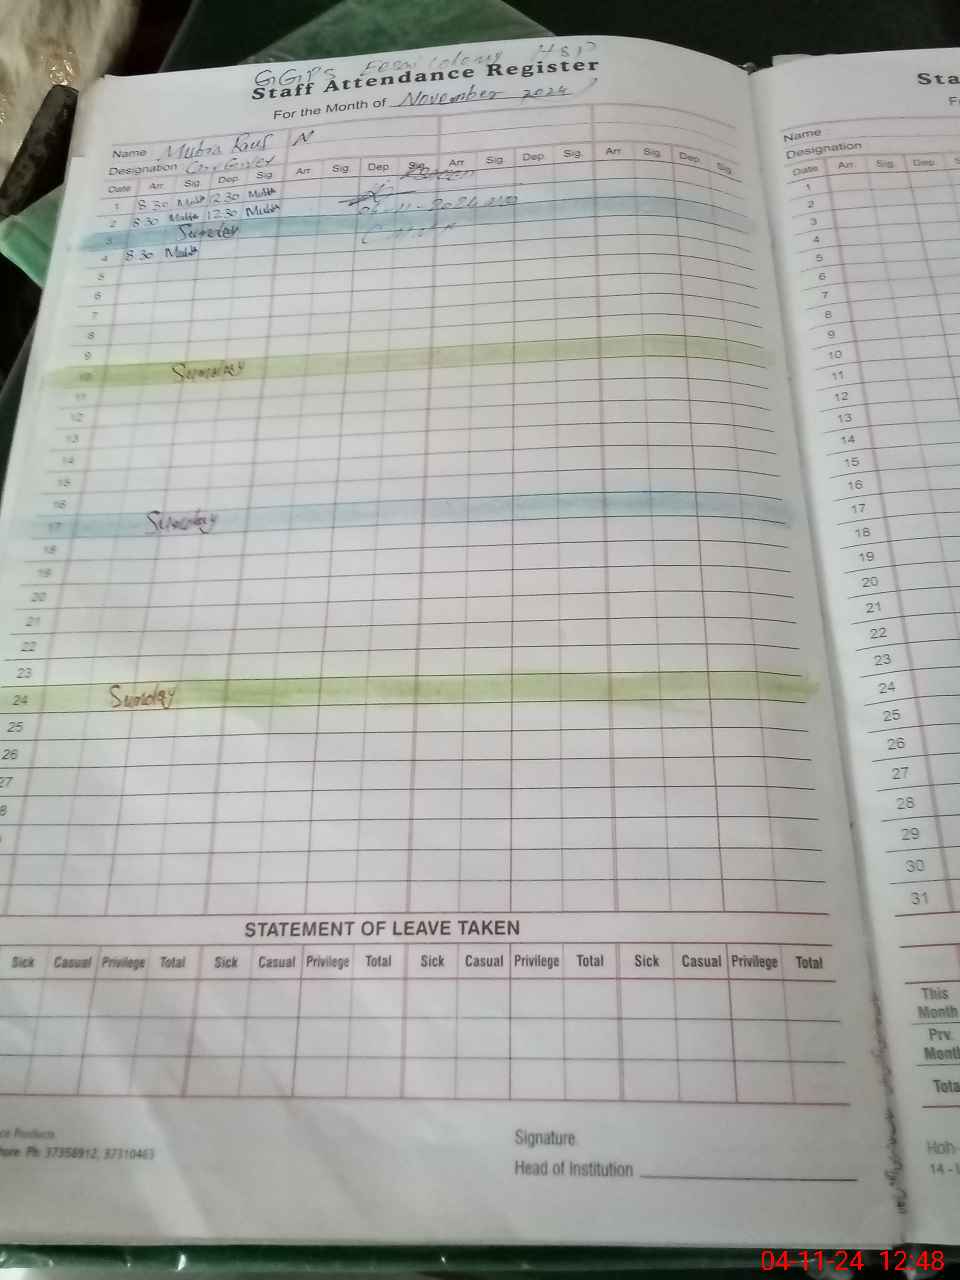 GGPS Essai Colony HSP
Staff Attendance Register
For the Month of November 2024
Name Mubra Rauf N
Designation
Date Arr. Sig. Dep. Sig. Arr. Sig. Dep. Sig. Arr. Sig. Dep. Sig. Arr. Sig. Dep. Sig.
1 8.30 12.30
2 8.30 12.30
3 Sunday
4 8.30
5
6
7
8
9
10 Sunday
11
12
13
14
15
16
17 Sunday
18
19
20
21
22
23
24 Sunday
25
26
27
8
STATEMENT OF LEAVE TAKEN
Sick Casual Privilege Total Sick Casual Privilege Total Sick Casual Privilege Total Sick Casual Privilege Total
ce Products
hore. Ph: 37358912, 37310463
Signature
Head of Institution
Sta
F
Name
Designation
Date Arr. Sig. Dep. S
1
2
3
4
5
6
7
8
9
10
11
12
13
14
15
16
17
18
19
20
21
22
23
24
25
26
27
28
29
30
31
This
Month
Prv.
Month
Tota
Hoh-
14 -
04-11-24 12:48